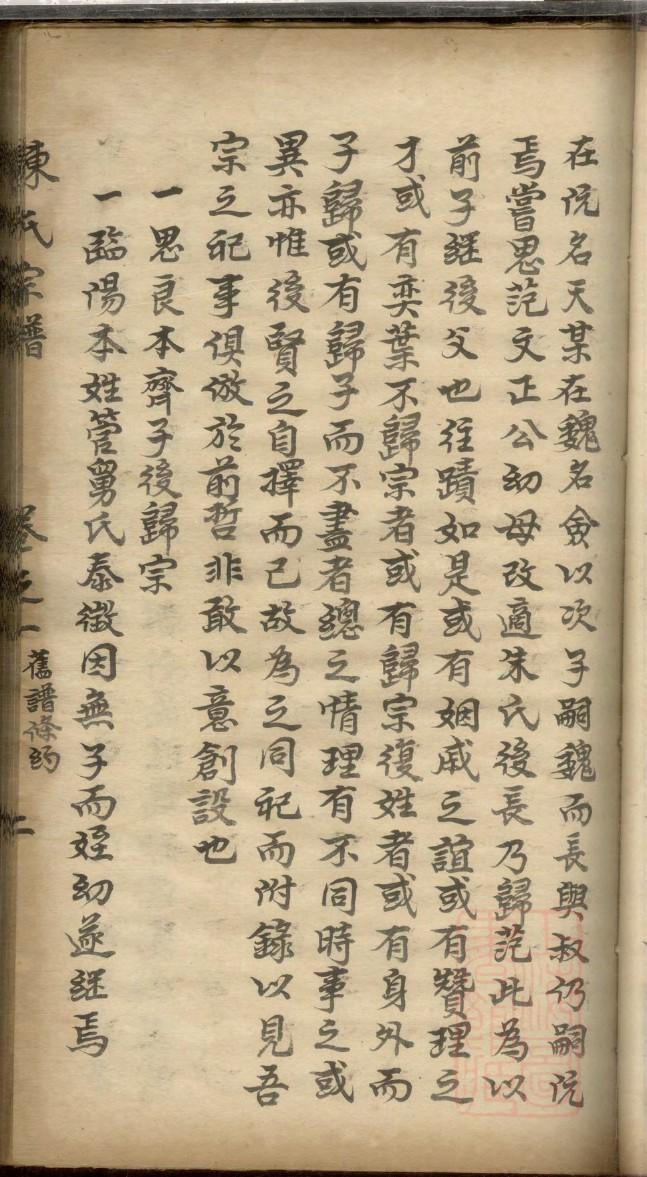 在阮名天某在魏名僉以次子嗣魏而長與叔仍嗣阮
焉嘗思范文正公幼母改適朱氏後長乃歸范此為以
前子継後父也徃蹟如是或有姻戚之誼或有贊理之
才或有奕葉不歸宗者或有歸宗復姓者或有身外而
子歸或有歸子而不盡者總之情理有不同時事之或
異亦惟後賢之自擇而已故為之同祀而附錄以見吾
宗之祀事俱倣於前哲非敢以意創設也
一思良本齊子後歸宗
一臨陽本姓管舅氏泰徵因無子而姪幼遂継焉
陳氏宗譜 卷之一 舊譜條約 二